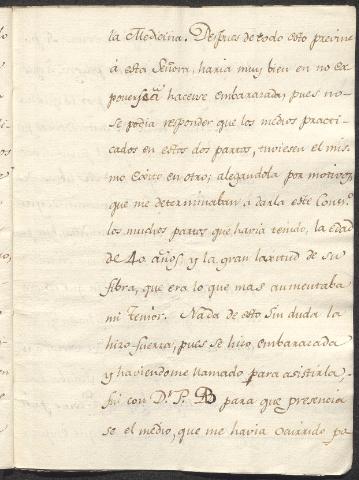 la Medicina. Despues de todo esto previne
à esta Señora, haria muy bien en no ex
ponerse à hacerse embarazada, pues no
se podia responder que los medios practi
cados en estos dos partos, tuviesen el mis
mo exito en otro; alegandola por motivos
que me determinaban à darla este Cons.º
los muchos partos que havia tenido, la edad
de 40 años, y la gran laxitud de su
fibra, que era lo que mas aumentaba
mi temor. Nada de esto sin duda la
hizo fuerza, pues se hizo embarazada
y haviendome llamado para asistirla
fui con Dn. P. para que presencia
se el medio, que me havia ocurrido pa